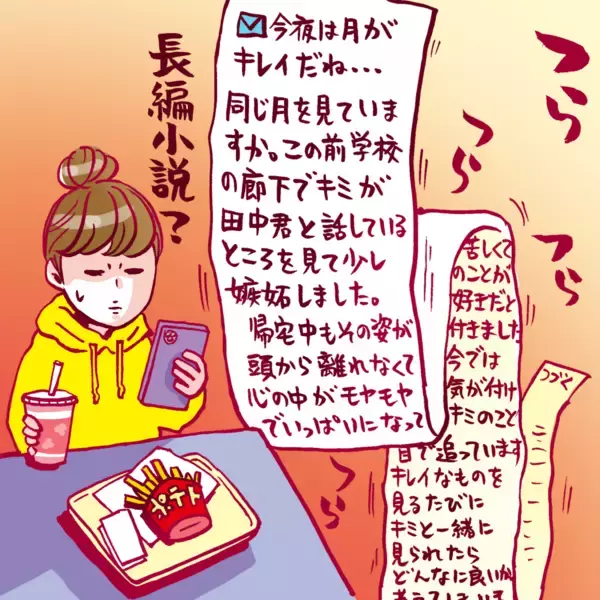 今夜は月が
キレイだね・・・
同じ月を見ていま
すか。この前学校
の廊下でキミが
田中君と話している
ところを見て少し
嫉妬しました。
帰宅中もその姿が
頭から離れなくて
心の中がモヤモヤ
でいっぱいになって
苦しくて
のことが
好きだと
付きました
今では
気が付け
キミのこと
目で追っています
キレイなものを
見るたびに
キミと一緒に
見られたら
どんなに良いか
つづく
長編小説?
つら
つら
つら
つら
ポテト